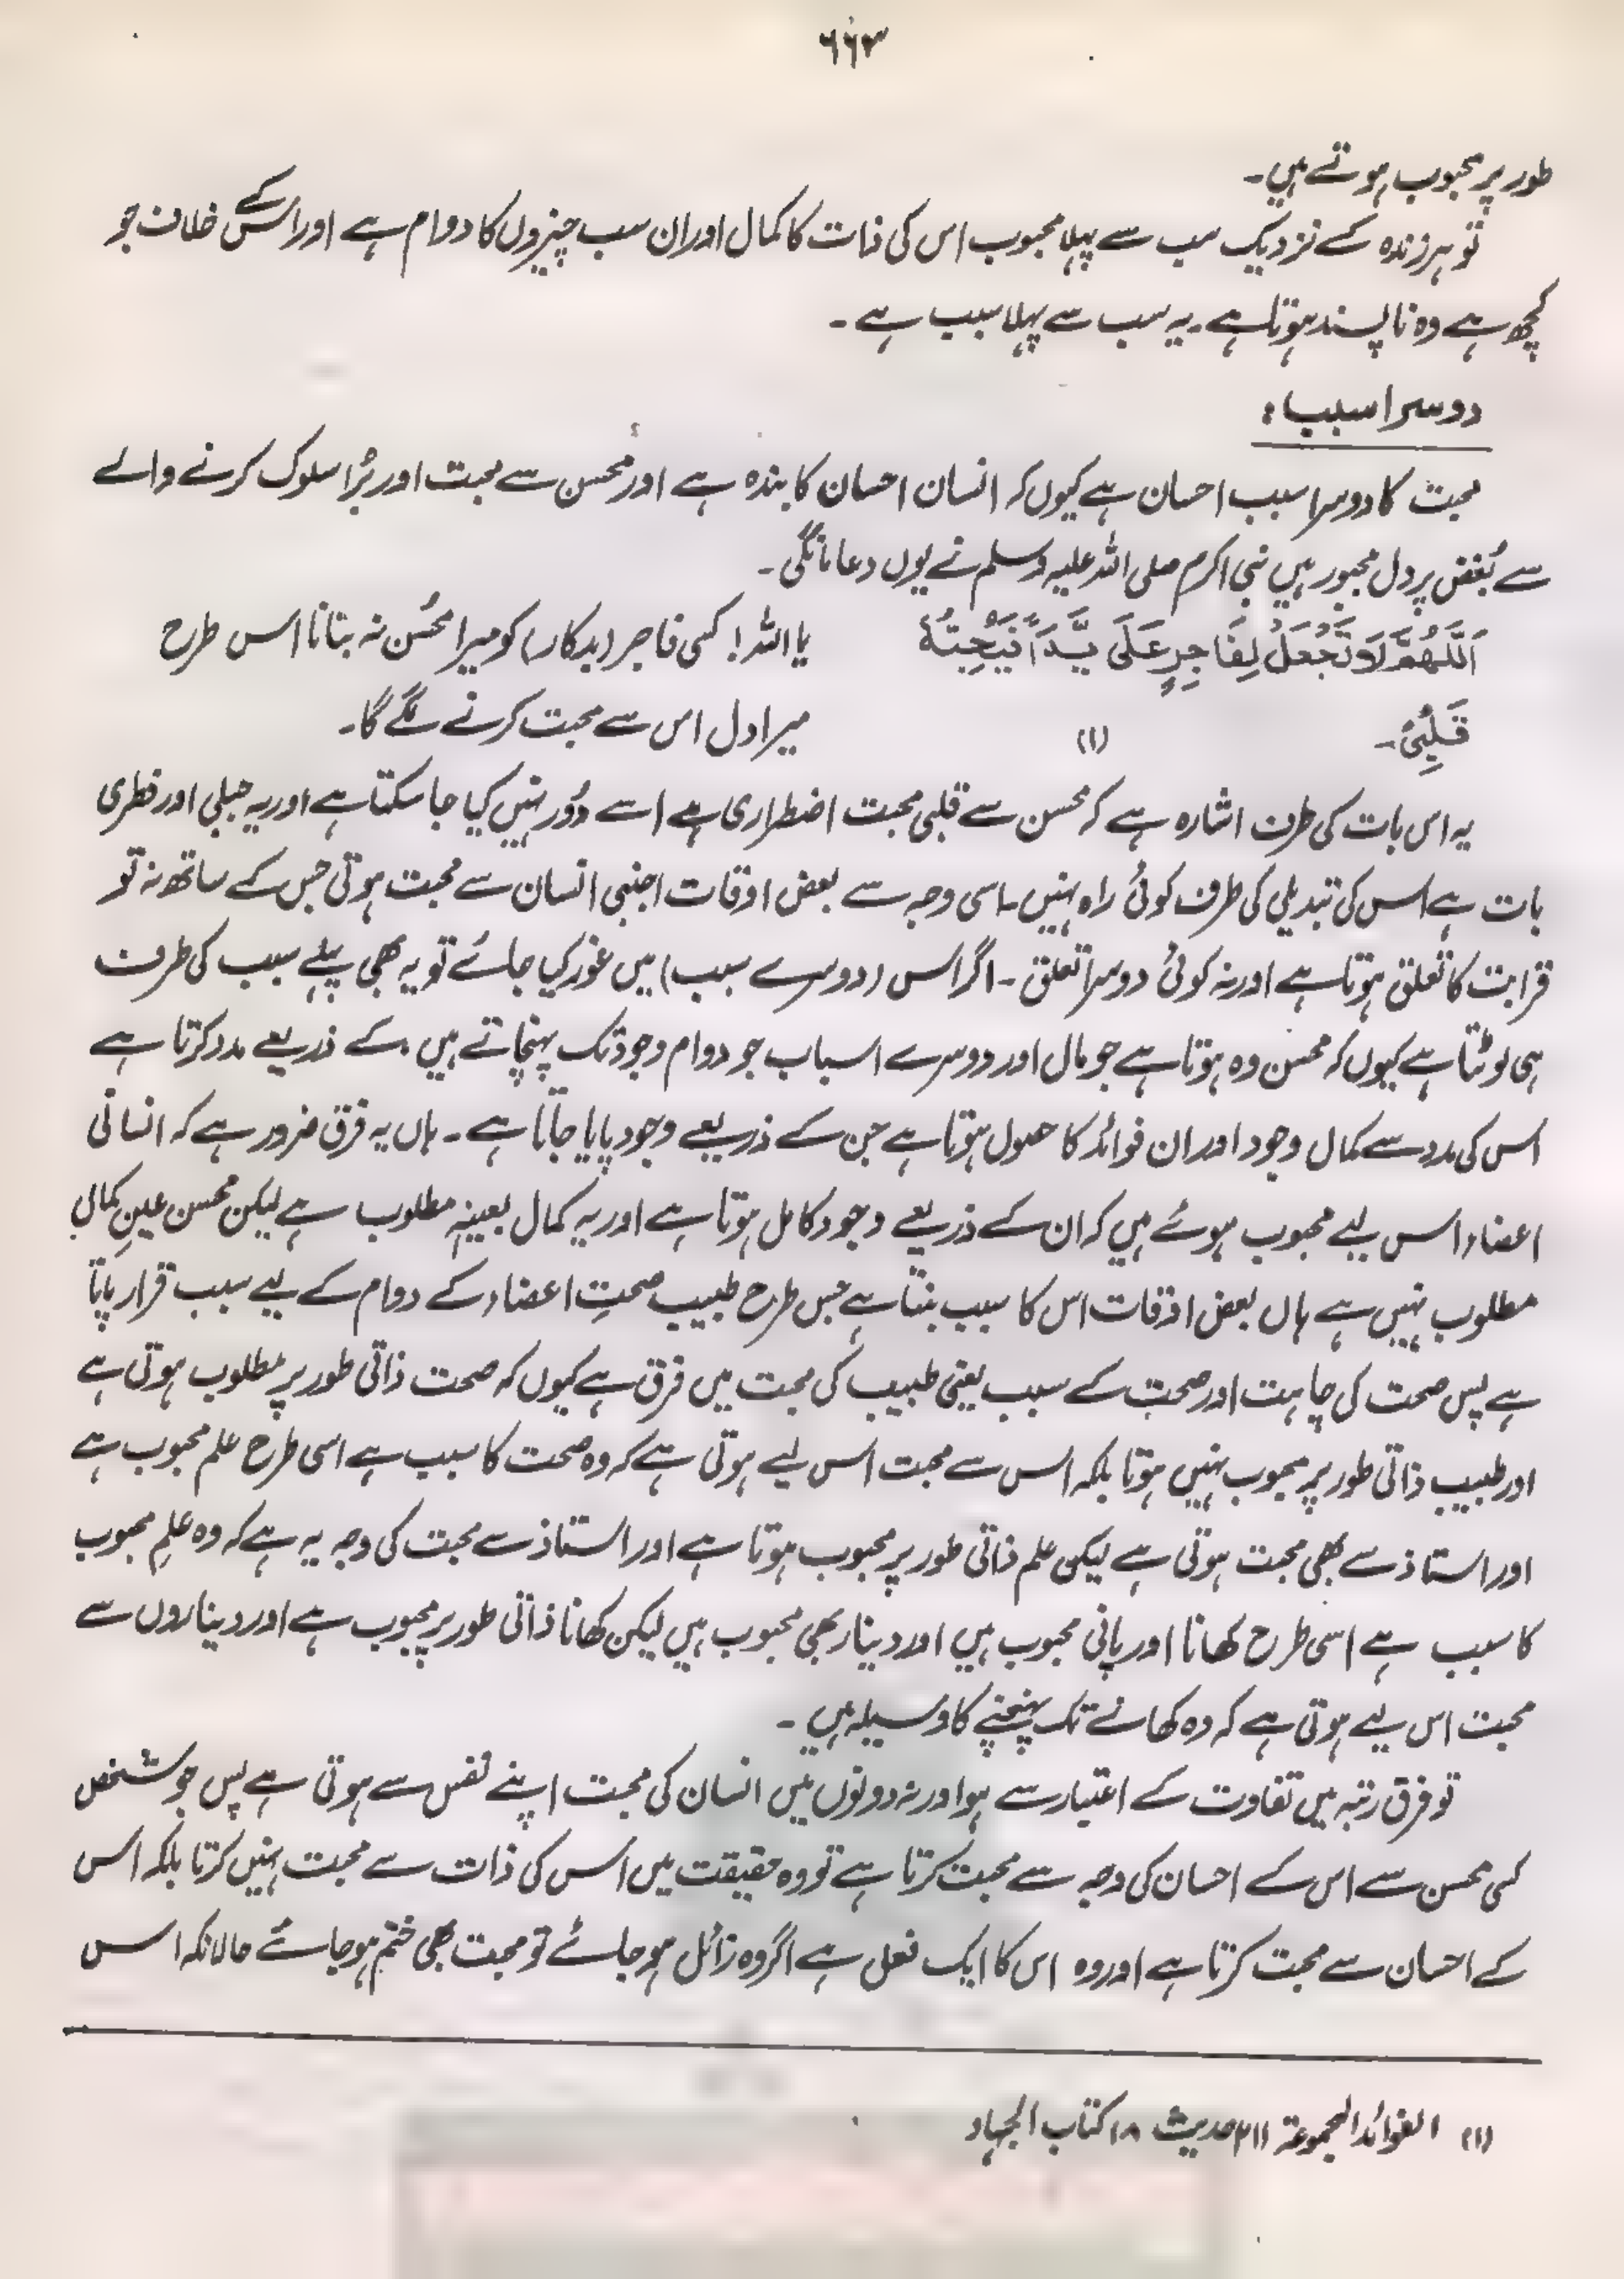 ۶۶۳
طور پر محبوب ہوتے ہیں۔
تو ہر زندہ کے نزدیک سب سے پہلا محبوب اس کی ذات کا کمال اور ان سب چیزوں کا دوام ہے اور اس کے خلاف جو
کچھ ہے وہ ناپسند ہوتا ہے۔ یہ سب سے پہلا سبب ہے۔
دوسرا سبب:
محبت کا دوسرا سبب احسان ہے کیوں کہ انسان احسان کا بندہ ہے اور محسن سے محبت اور بُرا سلوک کرنے والے
سے بُغض پر دل مجبور ہیں نبی اکرم صلی اللہ علیہ وسلم نے یوں دعا مانگی۔
اَللّٰهُمَّ لَا تَجْعَلْ لِفَاجِرٍ عَلَیَّ یَدًا فَیُحِبُّهٗ یا اللہ! کسی فاجر (بدکار) کو میرا محسن نہ بنانا اس طرح
قَلْبِیْ۔ (۱) میرا دل اس سے محبت کرنے لگے گا۔
یہ اس بات کی طرف اشارہ ہے کہ محسن سے قلبی محبت اضطراری ہے اسے دُور نہیں کیا جا سکتا ہے اور یہ جبلی اور فطری
بات ہے اس کی تبدیلی کی طرف کوئی راہ نہیں۔ اسی وجہ سے بعض اوقات اجنبی انسان سے محبت ہوتی جس کے ساتھ نہ تو
قرابت کا تعلق ہوتا ہے اور نہ کوئی دوسرا تعلق۔ اگر اس (دوسرے سبب) میں غور کیا جائے تو یہ بھی پہلے سبب کی طرف
ہی لوٹتا ہے کیوں کہ محسن وہ ہوتا ہے جو مال اور دوسرے اسباب جو دوام وجود تک پہنچاتے ہیں، کے ذریعے مدد کرتا ہے
اس کی مدد سے کمال وجود اور ان فوائد کا حصول ہوتا ہے جن کے ذریعے وجود پایا جاتا ہے۔ ہاں یہ فرق ضرور ہے کہ انسانی
اعضاء اس لیے محبوب ہوئے ہیں کہ ان کے ذریعے وجود کامل ہوتا ہے اور یہ کمال بعینہٖ مطلوب ہے لیکن محسن عینِ کمالِ
مطلوب نہیں ہے ہاں بعض اوقات اس کا سبب بنتا ہے جس طرح طبیب صحتِ اعضاء کے دوام کے لیے سبب قرار پاتا
ہے پس صحت کی چاہت اور صحت کے سبب یعنی طبیب کی محبت میں فرق ہے کیوں کہ صحت ذاتی طور پر مطلوب ہوتی ہے
اور طبیب ذاتی طور پر محبوب نہیں ہوتا بلکہ اس سے محبت اس لیے ہوتی ہے کہ وہ صحت کا سبب ہے اسی طرح علم محبوب ہے
اور استاذ سے بھی محبت ہوتی ہے لیکن علم ذاتی طور پر محبوب ہوتا ہے اور استاذ سے محبت کی وجہ یہ ہے کہ وہ علمِ محبوب
کا سبب ہے اسی طرح کھانا اور پانی محبوب ہیں اور دینار بھی محبوب ہیں لیکن کھانا ذاتی طور پر محبوب ہے اور دیناروں سے
محبت اس لیے ہوتی ہے کہ وہ کھانے تک پہنچنے کا وسیلہ ہیں۔
تو فرق رتبہ میں تفاوت کے اعتبار سے ہوا ورنہ دونوں میں انسان کی محبت اپنے نفس سے ہوتی ہے پس جو شخص
کسی محسن سے اس کے احسان کی وجہ سے محبت کرتا ہے تو وہ حقیقت میں اس کی ذات سے محبت نہیں کرتا بلکہ اس
کے احسان سے محبت کرتا ہے اور وہ اس کا ایک فعل ہے اگر وہ زائل ہو جائے تو محبت بھی ختم ہو جائے حالانکہ اس
(۱) الفوائد المجموعۃ ۲۱۱ حدیث ۱۸ کتاب الجہاد